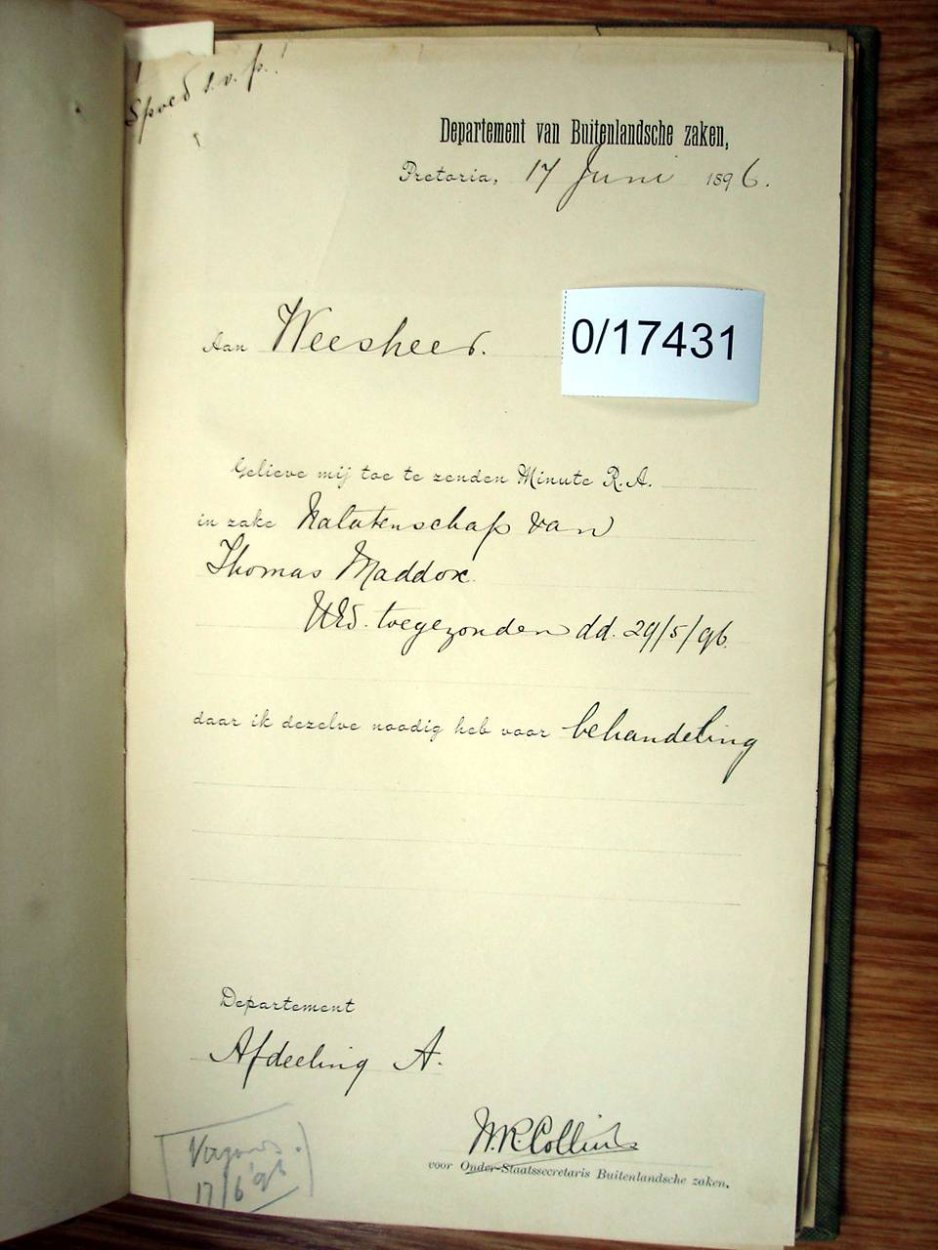 Spoed s.v.p.!
Departement van Buitenlandsche zaken,
Pretoria, 17 Juni 1896.
Aan Weesheer.
0/17431
Gelieve mij toe te zenden Minute R.A.
in zake Nalatenschap van
Thomas Maddox
UEd. toegezonden dd. 29/5/96.
daar ik dezelve noodig heb voor behandeling
Departement
Afdeeling A.
W.R. Collins
voor Onder-Staatssecretaris Buitenlandsche zaken.
17/6/96